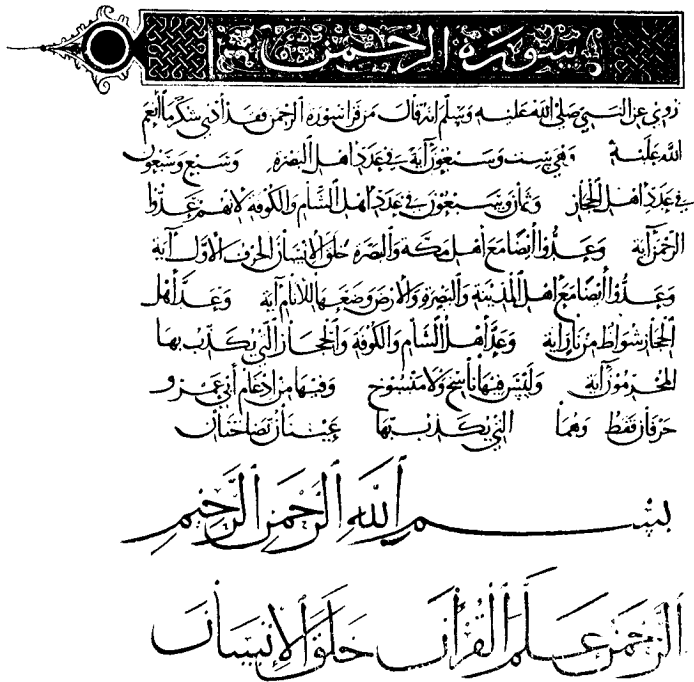 سورة الرحمن
روي عن النبي صلى الله عليه وسلم أنه قال من قرأ سورة الرحمن فقد أدى شكر ما أنعم
الله عليه وهي ست وسبعون آية في عدد أهل البصرة وسبع وسبعون
في عدد أهل الحجاز وثمان وسبعون في عدد أهل الشام والكوفة لأنهم عدوا
الرحمن آية وعدوا أيضا مع أهل مكة والبصرة خلق الإنسان الحرف الأول آية
وعدوا أيضا مع أهل المدينة والبصرة والأرض وضعها للأنام آية وعد أهل
الحجاز شواظ من نار آية وعد أهل الشام والكوفة والحجاز التي يكذب بها
المجرمون آية وليس فيها ناسخ ولا منسوخ وفيها من إدغام أبي عمرو
حرفان فقط وهما التي يكذب بها عينان نضاختان
بِسْمِ اللَّهِ الرَّحْمَنِ الرَّحِيمِ
الرَّحْمَنُ عَلَّمَ الْقُرْآنَ خَلَقَ الْإِنْسَانَ